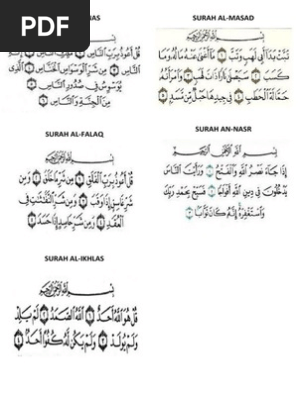 PDF
AS
قُلْ أَعُوذُ بِرَبِّ النَّاسِ
النَّاسِ مِنْ شَرِّ الْوَسْوَاسِ الْخَنَّاسِ الَّذِي
يُوَسْوِسُ فِي صُدُورِ النَّاسِ
مِنَ الْجِنَّةِ وَالنَّاسِ
SURAH AL-FALAQ
بِسْمِ اللَّهِ الرَّحْمَٰنِ الرَّحِيمِ
قُلْ أَعُوذُ بِرَبِّ الْفَلَقِ ١ مِنْ شَرِّ مَا خَلَقَ ٢ وَمِنْ
شَرِّ غَاسِقٍ إِذَا وَقَبَ ٣ وَمِنْ شَرِّ النَّفَّاثَاتِ فِي
الْعُقَدِ ٤ وَمِنْ شَرِّ حَاسِدٍ إِذَا حَسَدَ ٥
SURAH AL-IKHLAS
بِسْمِ اللَّهِ الرَّحْمَٰنِ الرَّحِيمِ
قُلْ هُوَ اللَّهُ أَحَدٌ ١ اللَّهُ الصَّمَدُ ٢ لَمْ يَلِدْ
وَلَمْ يُولَدْ ٣ وَلَمْ يَكُنْ لَهُ كُفُوًا أَحَدٌ ٤
SURAH AL-MASAD
بِسْمِ اللَّهِ الرَّحْمَٰنِ الرَّحِيمِ
تَبَّتْ يَدَا أَبِي لَهَبٍ وَتَبَّ ١ مَا أَغْنَىٰ عَنْهُ مَالُهُ وَمَا
كَسَبَ ٢ سَيَصْلَىٰ نَارًا ذَاتَ لَهَبٍ ٣ وَامْرَأَتُهُ
حَمَّالَةَ الْحَطَبِ ٤ فِي جِيدِهَا حَبْلٌ مِنْ مَسَدٍ ٥
SURAH AN-NASR
بِسْمِ اللَّهِ الرَّحْمَٰنِ الرَّحِيمِ
إِذَا جَاءَ نَصْرُ اللَّهِ وَالْفَتْحُ ١ وَرَأَيْتَ النَّاسَ
يَدْخُلُونَ فِي دِينِ اللَّهِ أَفْوَاجًا ٢ فَسَبِّحْ بِحَمْدِ رَبِّكَ
وَاسْتَغْفِرْهُ إِنَّهُ كَانَ تَوَّابًا ٣